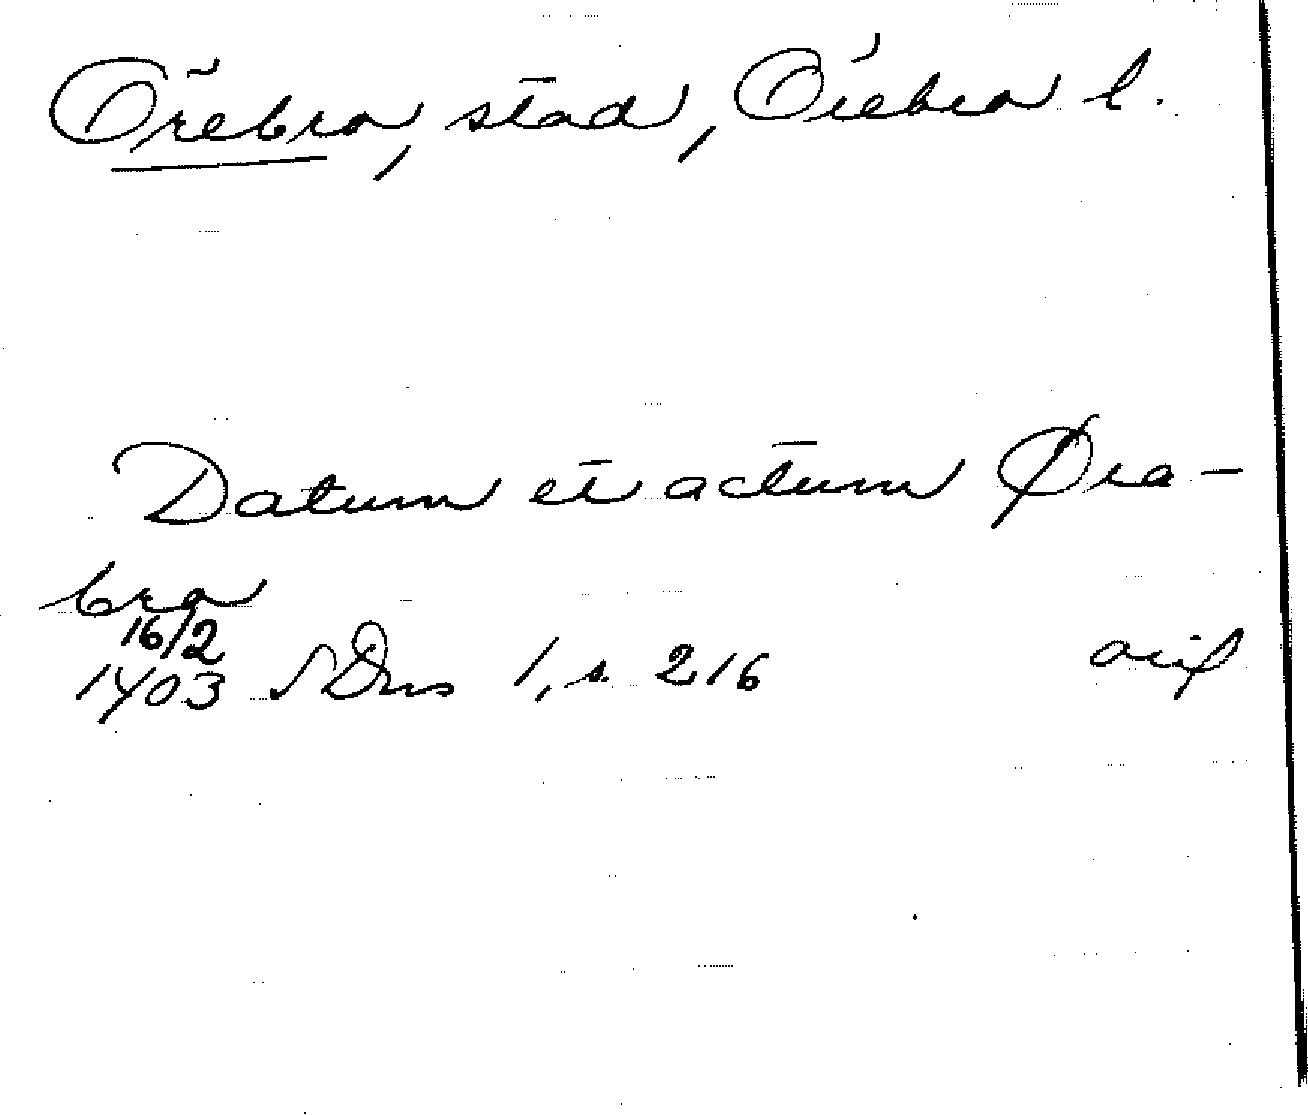 Örebro, stad, Örebro l.
Datum et actum Øra-
bro
16/2
1403 SDns 1, s. 216 avil